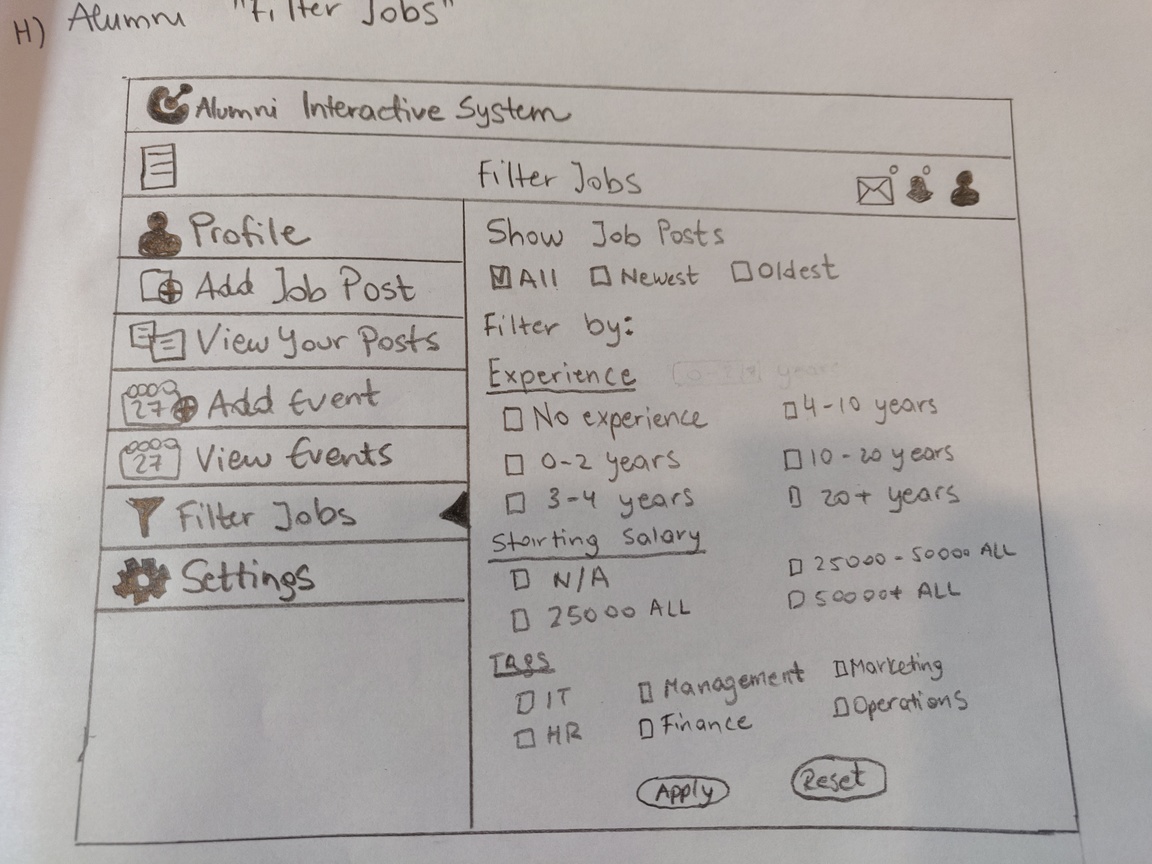 H) Alumni "Filter Jobs"
Alumni Interactive System
Filter Jobs
Profile
Add Job Post
View Your Posts
27 Add Event
27 View Events
Filter Jobs
Settings
Show Job Posts
All Newest Oldest
Filter by:
Experience
No experience 4-10 years
0-2 years 10-20 years
3-4 years 20+ years
Starting Salary
N/A 25000-50000 ALL
25000 ALL 50000+ ALL
Tags
IT Management Marketing
HR Finance Operations
Apply Reset